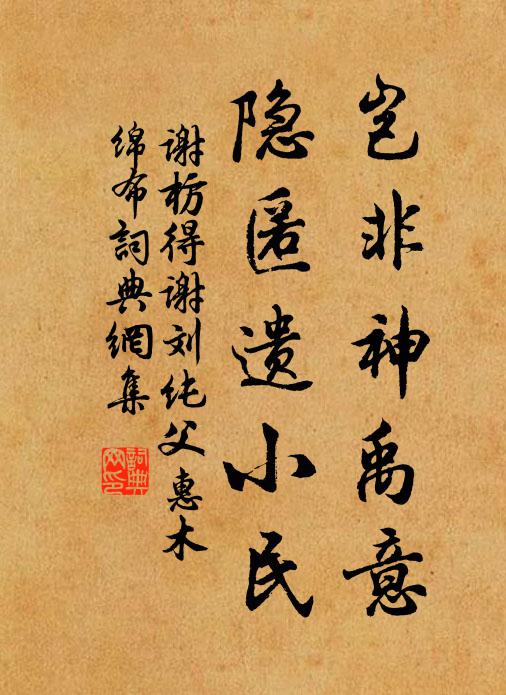 岂非神禹意
隐匿遗小民
谢枋得谢刘纯父惠木
绵布詞典網集
詞典網印